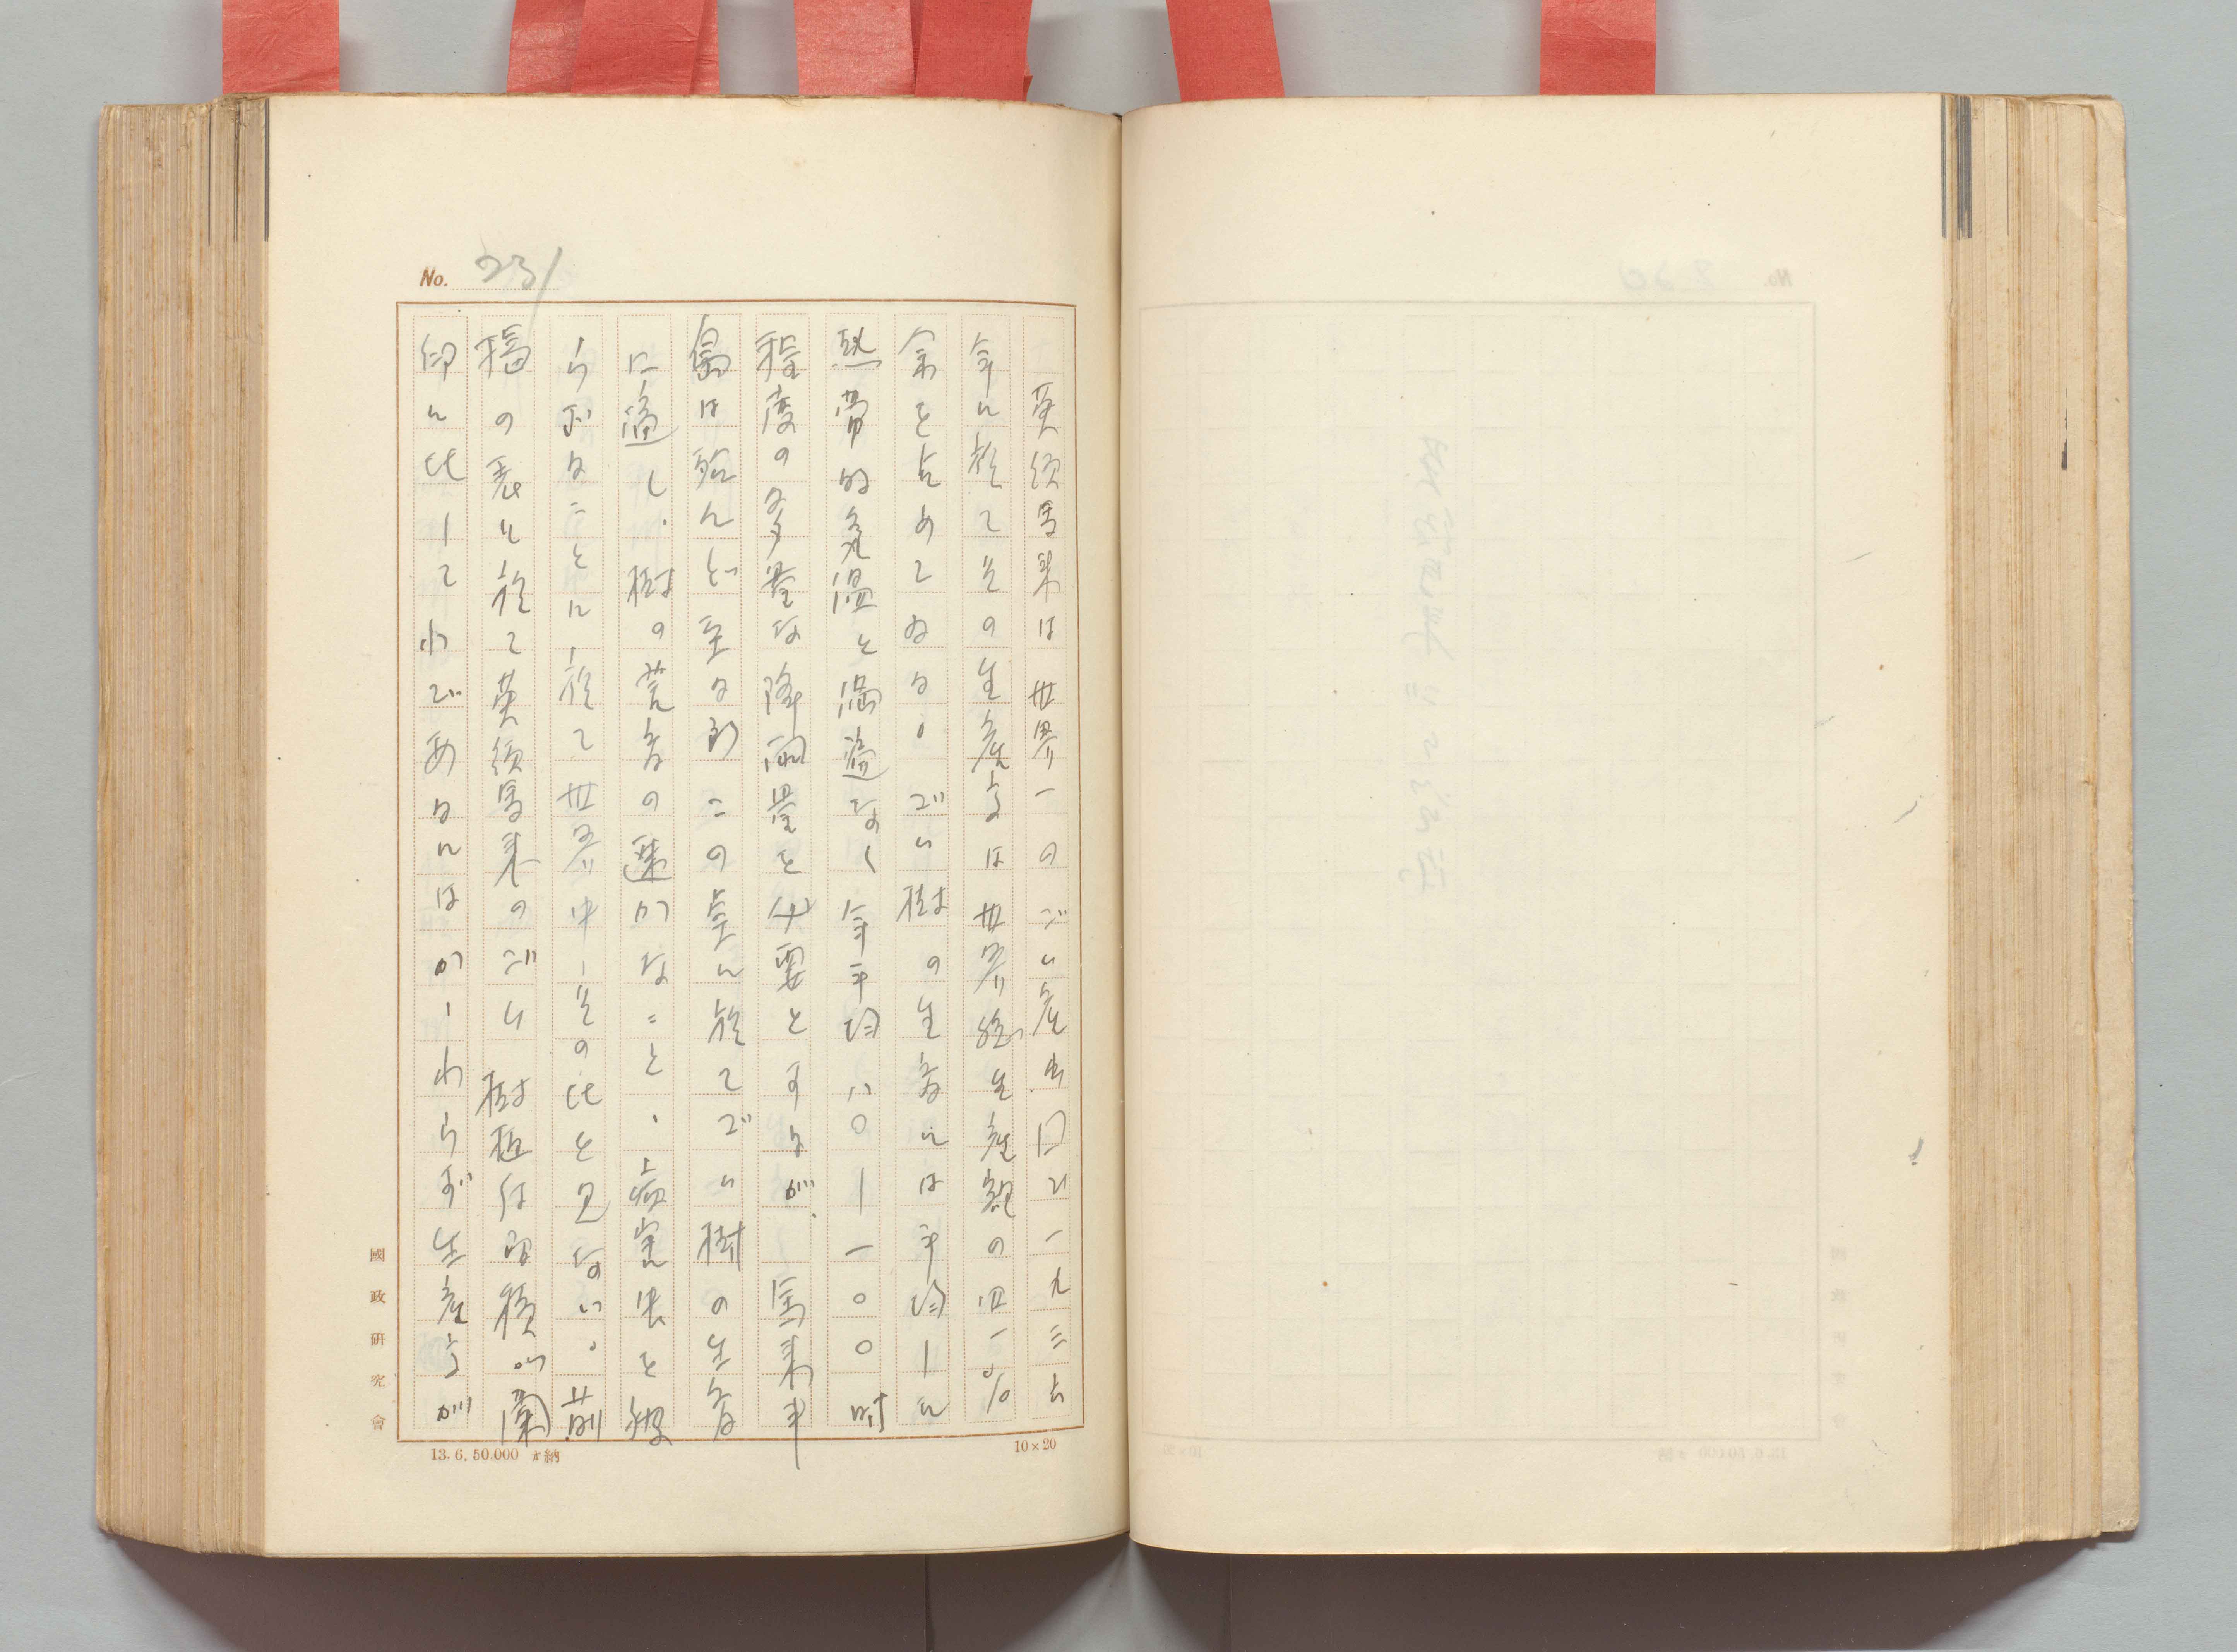 No. 231
英領馬来は世界一のゴム産出国で一九三六
年に於てその生産高は世界総生産額の四一%
余を占めてゐる。ゴム樹の生育には平均した
熱帯的気温と湿温なく年平均八〇—一〇〇吋
程度の多量な降雨量を必要とするが、馬来半
島は殆んど至る所この点に於てゴム樹の生育
に適し、樹の発育の速かなこと、病害虫を被
らざることに於て世界中その比を見ない。前
掲の表に於て英領馬来のゴム樹植付面積が蘭
印に比してわづあるにはかかわらず生産高が
國政研究會
13. 6. 50.000 納
10×20